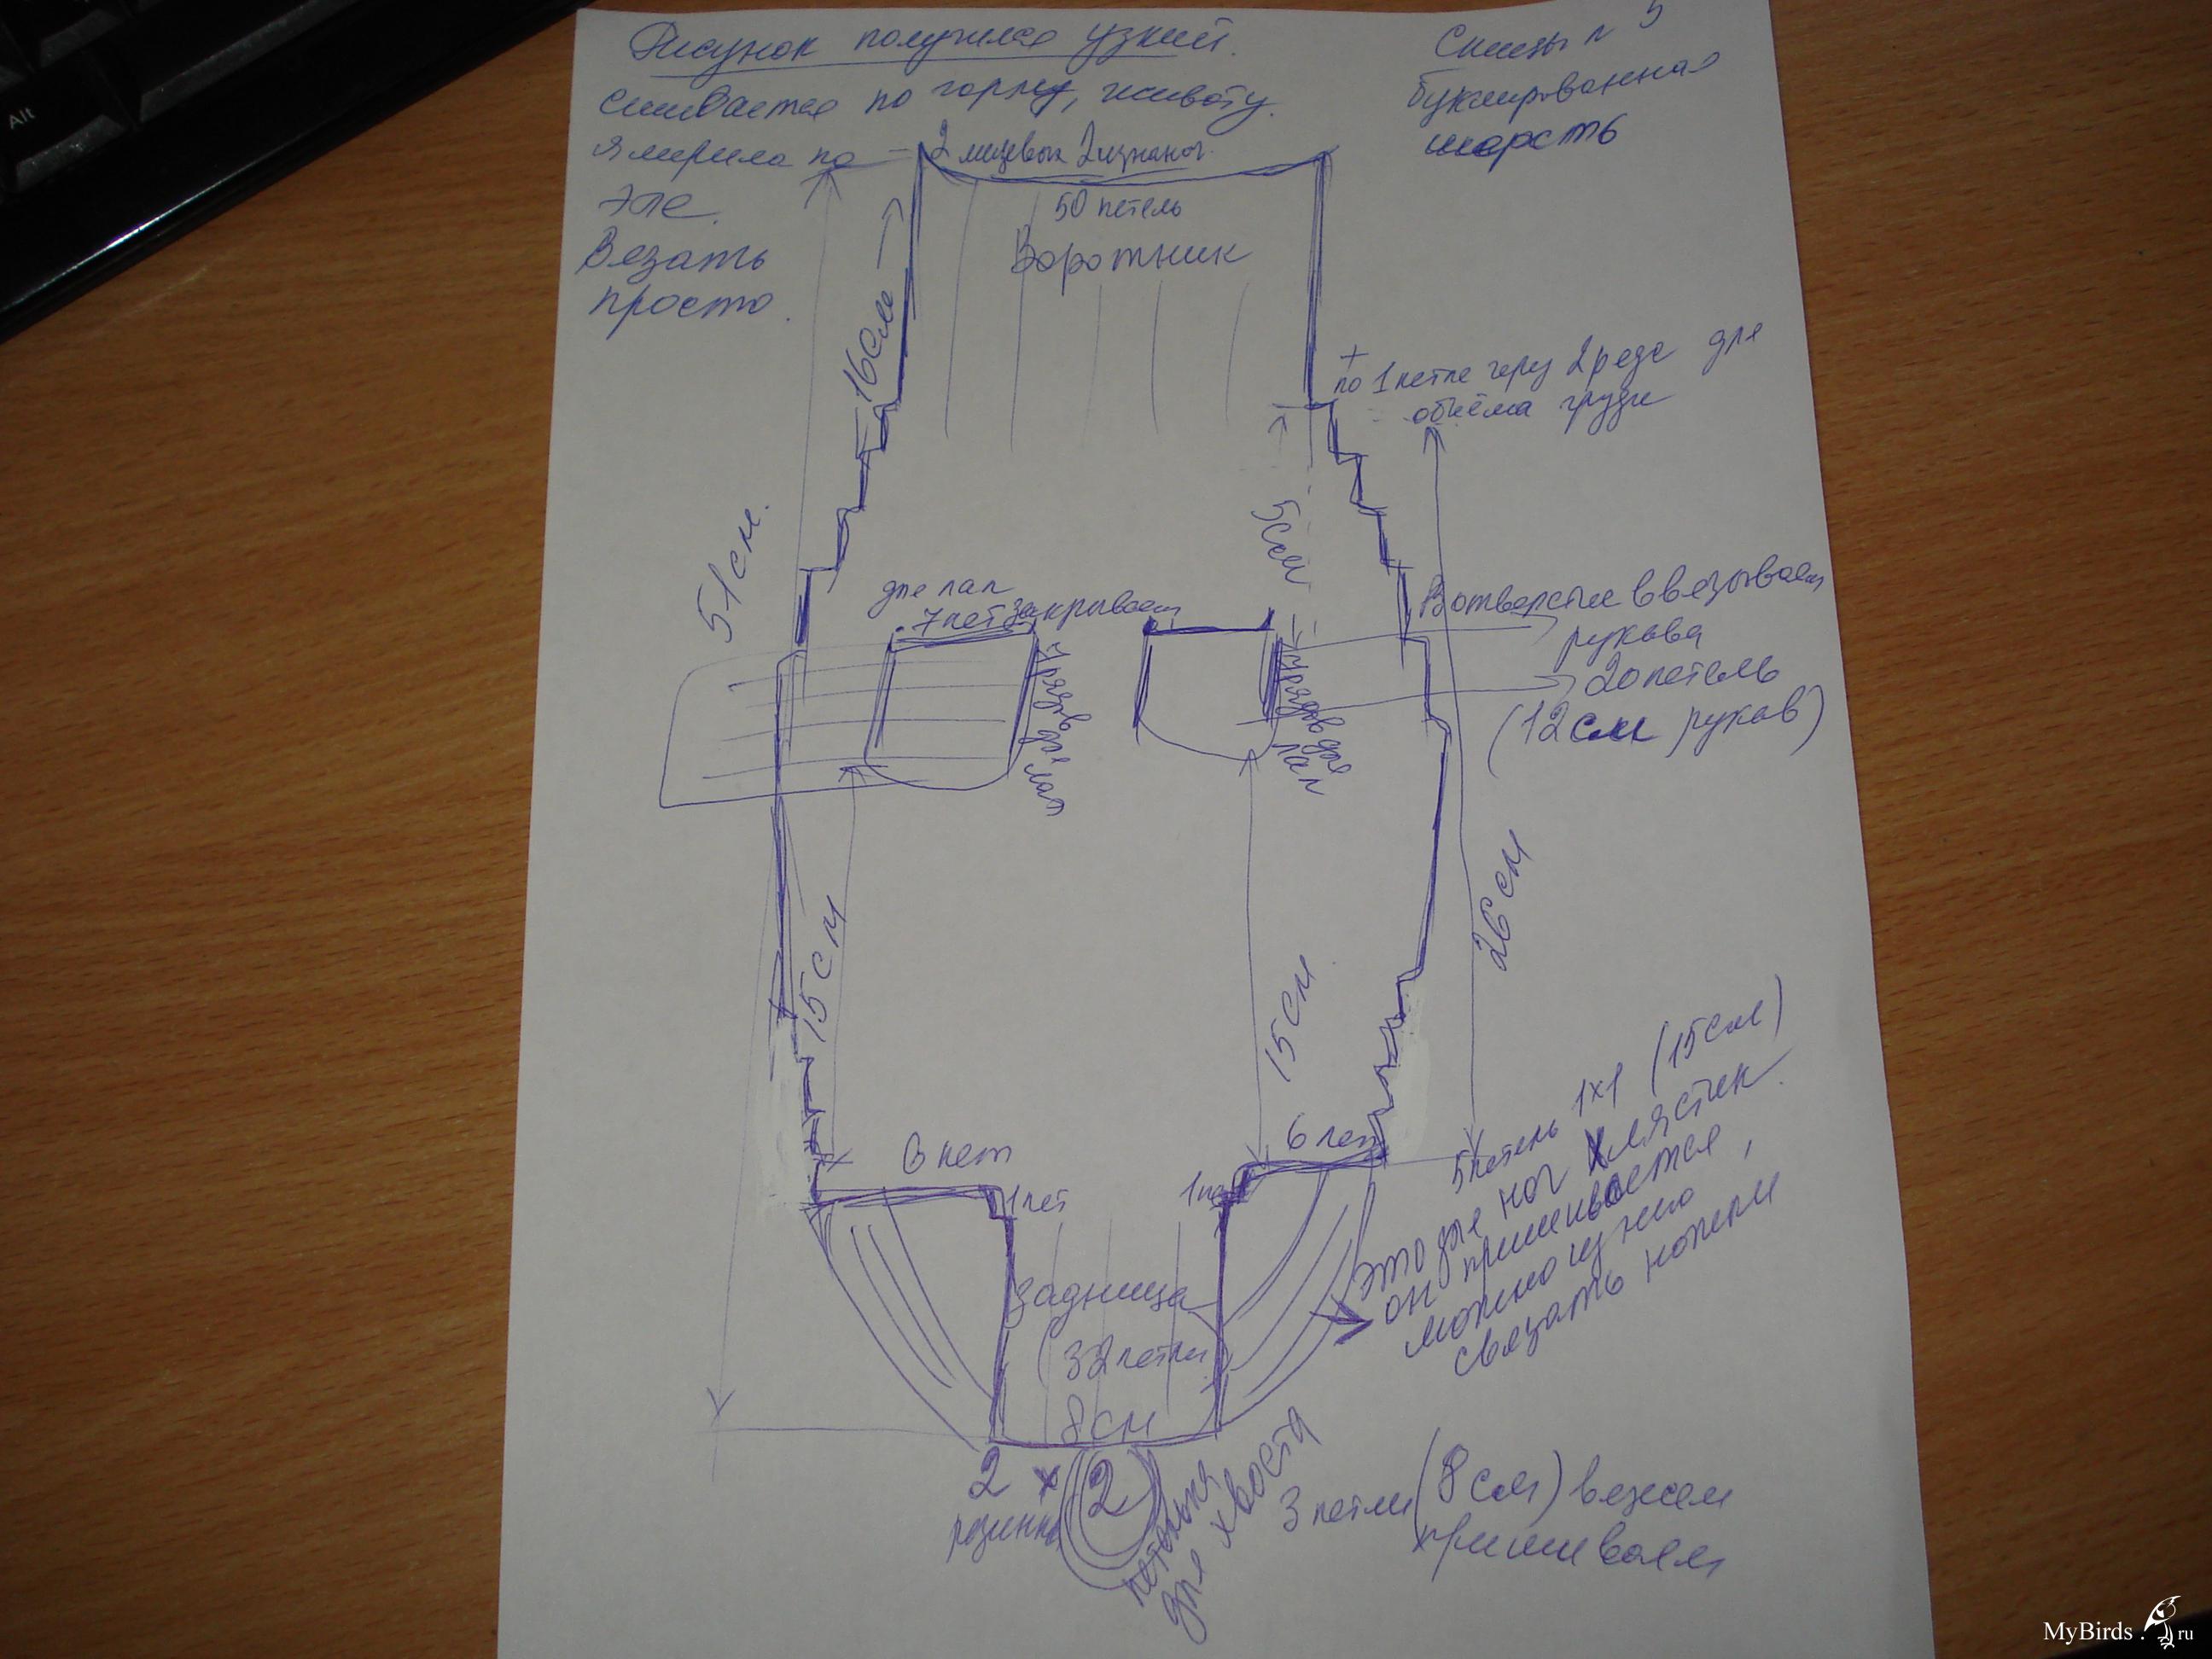 Рисунок получился узкий.
сшивается по горлу, животу.
я мерила по
эле.
Вязать
просто.
Спицы n 5
буклированная
шерсть
2 лицевых 2 изнаноч.
50 петель
Воротник
16см
+
по 1 петле через 2 ряда для
объёма груди
5см
51см.
для лап
7 пет закрываем
В отверстие ввязываем
рукава
20 петель
(12см рукав)
рядов для лап
рядов для лап
15см
15см
26см
6 пет
6 пет
1 пет
1 пет
5 петель 1x1 (15см)
это для ног хлястик.
он пришивается,
можно из него
связать
задница
(32 петли)
8см
2 x 2
резинка
петелька
для хвоста
3 петли (8см) вяжем
пришиваем
Alt
MyBirds.ru